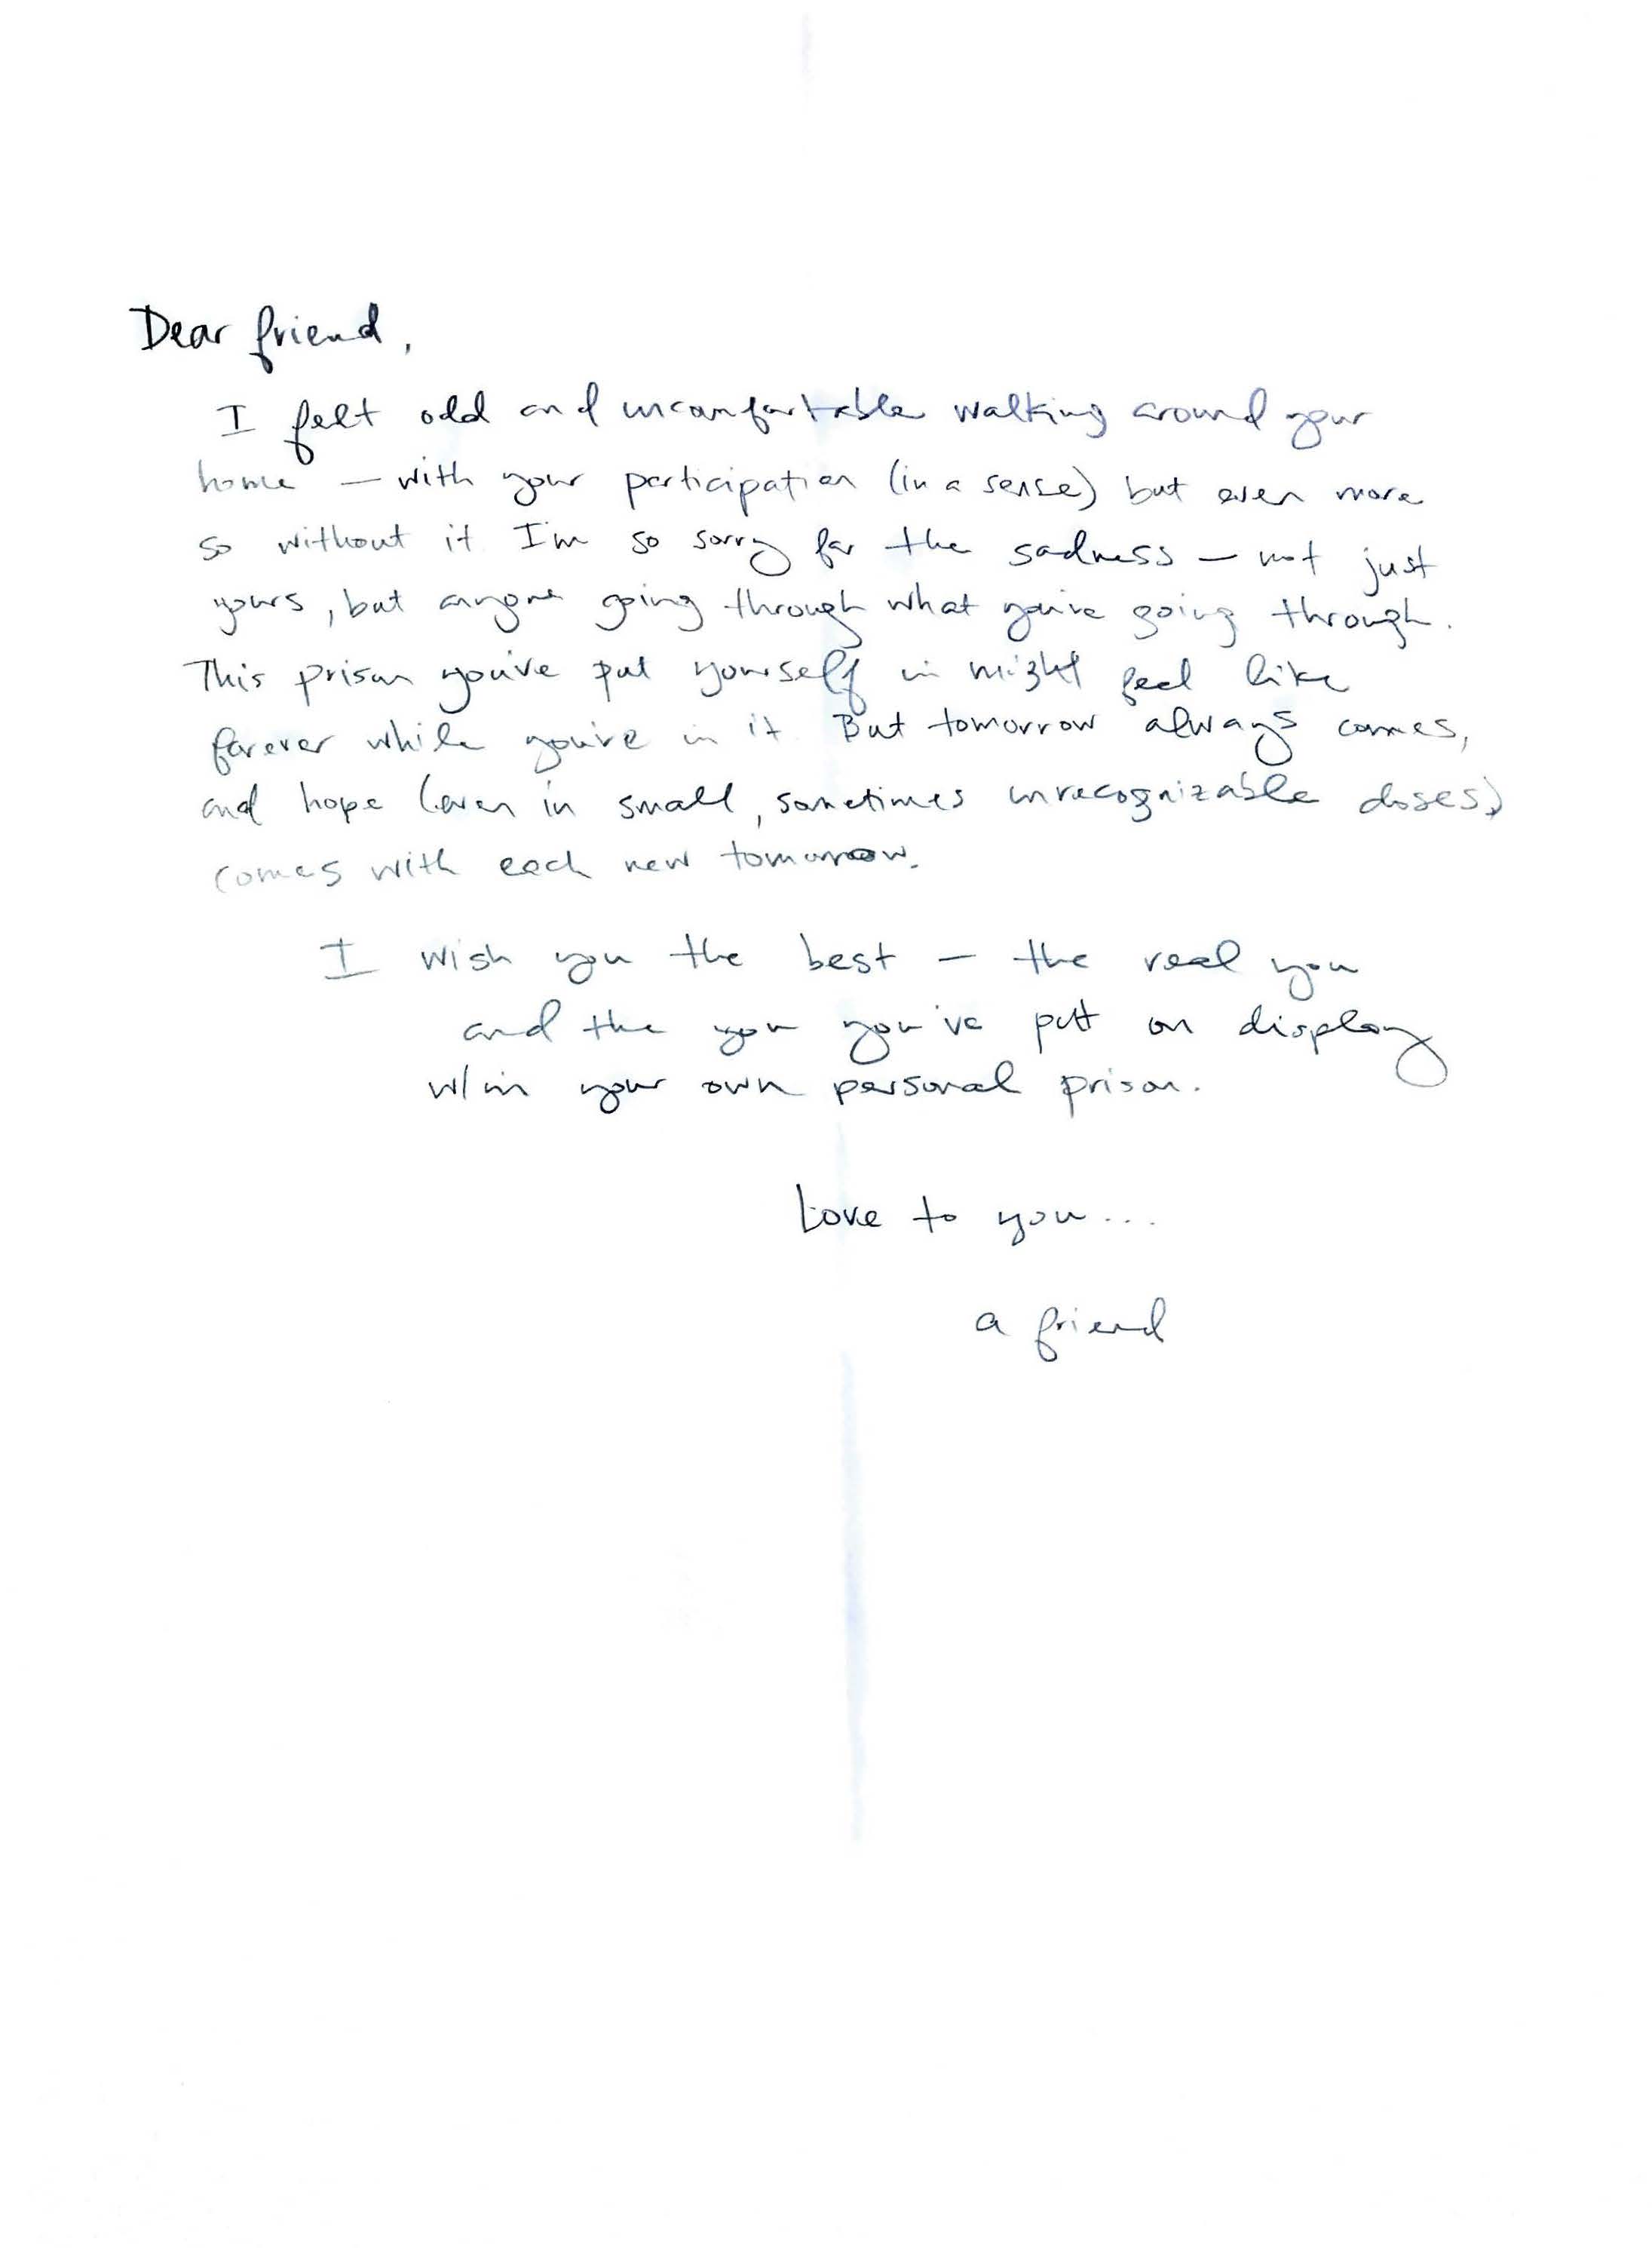 Dear friend,
I felt odd and uncomfortable walking around your
home — with your participation (in a sense) but even more
so without it. I'm so sorry for the sadness — not just
yours, but anyone going through what you're going through.
This prison you've put yourself in might feel like
forever while you're in it. But tomorrow always comes,
and hope (even in small, sometimes unrecognizable doses)
comes with each new tomorrow.
I wish you the best — the real you
and the you you've put on display
w/in your own personal prison.
Love to you...
a friend